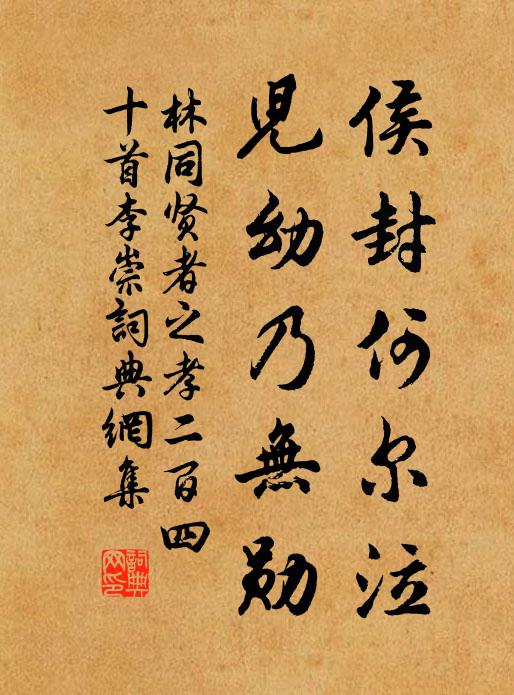 侯封何尔泣
児幼乃無勋
林同贤者之孝二百四
十首李崇詞典網集
詞典网印